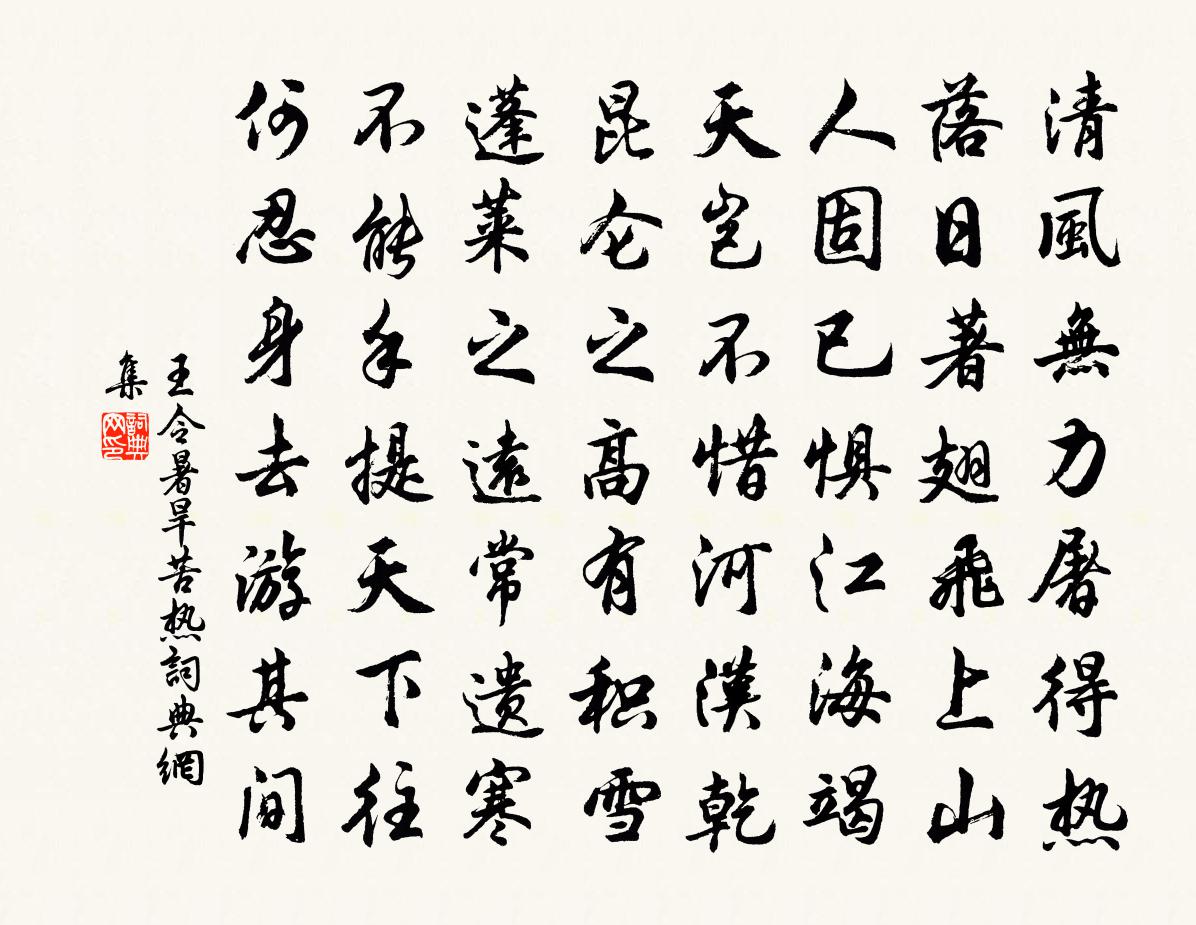 清風無力屠得热
落日著翅飛上山
人固已惧江海竭
天岂不惜河漢乾
昆仑之高有积雪
蓬莱之遠常遗寒
不能手提天下往
何忍身去游其间
王令暑旱苦热詞典網
集
詞典
网印